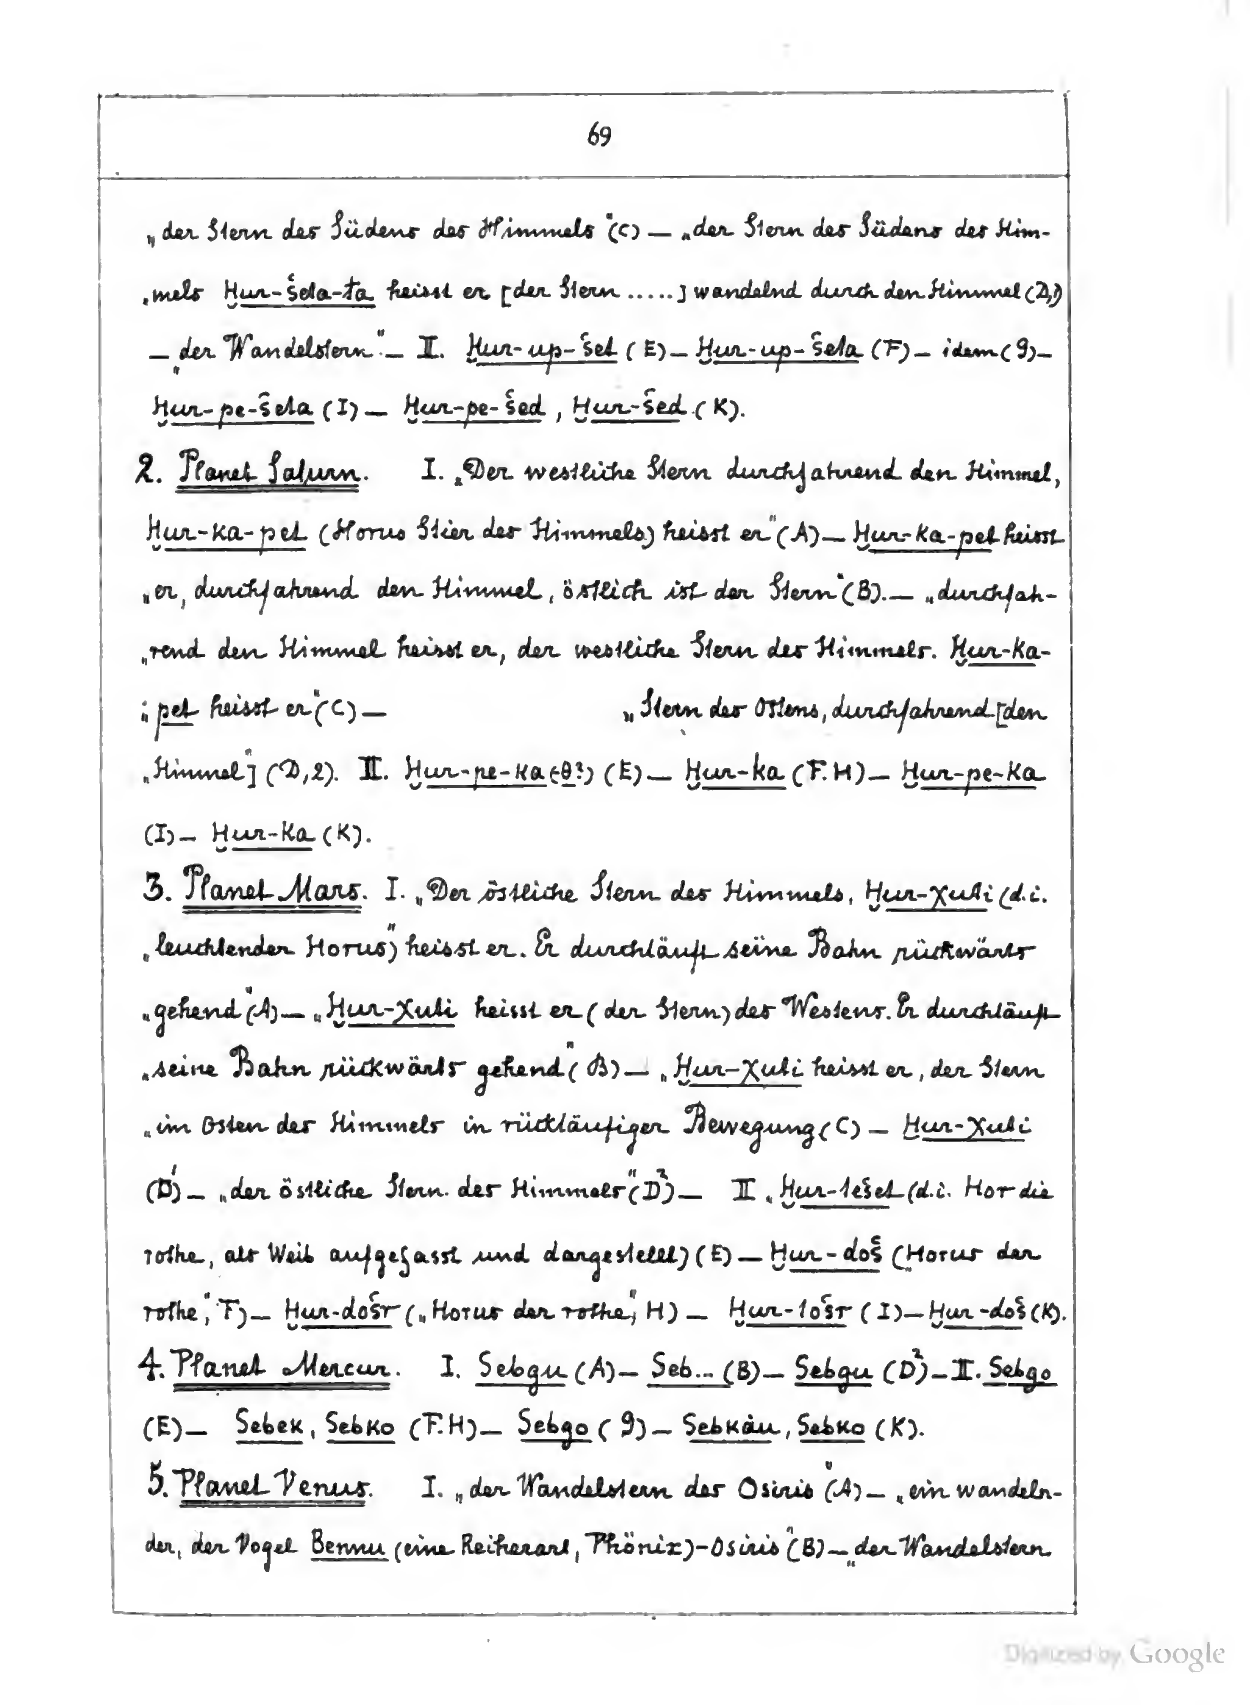 69
„der Stern des Südens des Himmels“ (C) — „der Stern des Südens des Him-
„mels Ḥur-šeta-ta heisst er [der Stern .....] wandelnd durch den Himmel (D,1)
— „der Wandelstern“ — II. Ḥur-up-šet (E) — Ḥur-up-šeta (F) — idem (G) —
Ḥur-pe-šeta (I) — Ḥur-pe-šed, Ḥur-šed (K).
2. Planet Saturn. I. „Der westliche Stern durchfahrend den Himmel,
Ḥur-ka-pet (Horus Stier des Himmels) heisst er“ (A) — Ḥur-ka-pet heisst
„er, durchfahrend den Himmel, östlich ist der Stern“ (B). — „durchfah-
„rend den Himmel heisst er, der westliche Stern des Himmels. Ḥur-ka-
„pet heisst er“ (C) — „Stern des Ostens, durchfahrend [den
„Himmel“] (D,2). II. Ḥur-pe-ka (-θ?) (E) — Ḥur-ka (F.H) — Ḥur-pe-Ka
(I) — Ḥur-Ka (K).
3. Planet Mars. I. „Der östliche Stern des Himmels, Ḥur-χuti (d.i.
„leuchtender Horus“) heisst er. Er durchläuft seine Bahn rückwärts
„gehend“ (A) — „Ḥur-χuti heisst er (der Stern) des Westens. Er durchläuft
„seine Bahn rückwärts gehend“ (B) — „Ḥur-χuti heisst er, der Stern
„im Osten des Himmels in rückläufiger Bewegung (C) — Ḥur-χuti
(D¹) — „der östliche Stern des Himmels“ (D²) — II „Ḥur-tešet (d.i. Hor die
rothe, als Weib aufgefasst und dargestellt) (E) — Ḥur-doš („Horus der
rothe“, F) — Ḥur-došr („Horus der rothe“, H) — Ḥur-tošr (I) — Ḥur-doš (K).
4. Planet Mercur. I. Sebgu (A) — Seb... (B) — Sebgu (D²) — II. Sebgo
(E) — Sebek, Sebko (F.H) — Sebgo (G) — Sebkàu, Sebko (K).
5. Planet Venus. I. „der Wandelstern des Osiris“ (A) — „ein wandeln-
der, der Vogel Bennu (eine Reiherart, Phönix)-Osiris“ (B) — „der Wandelstern
Digitized by Google